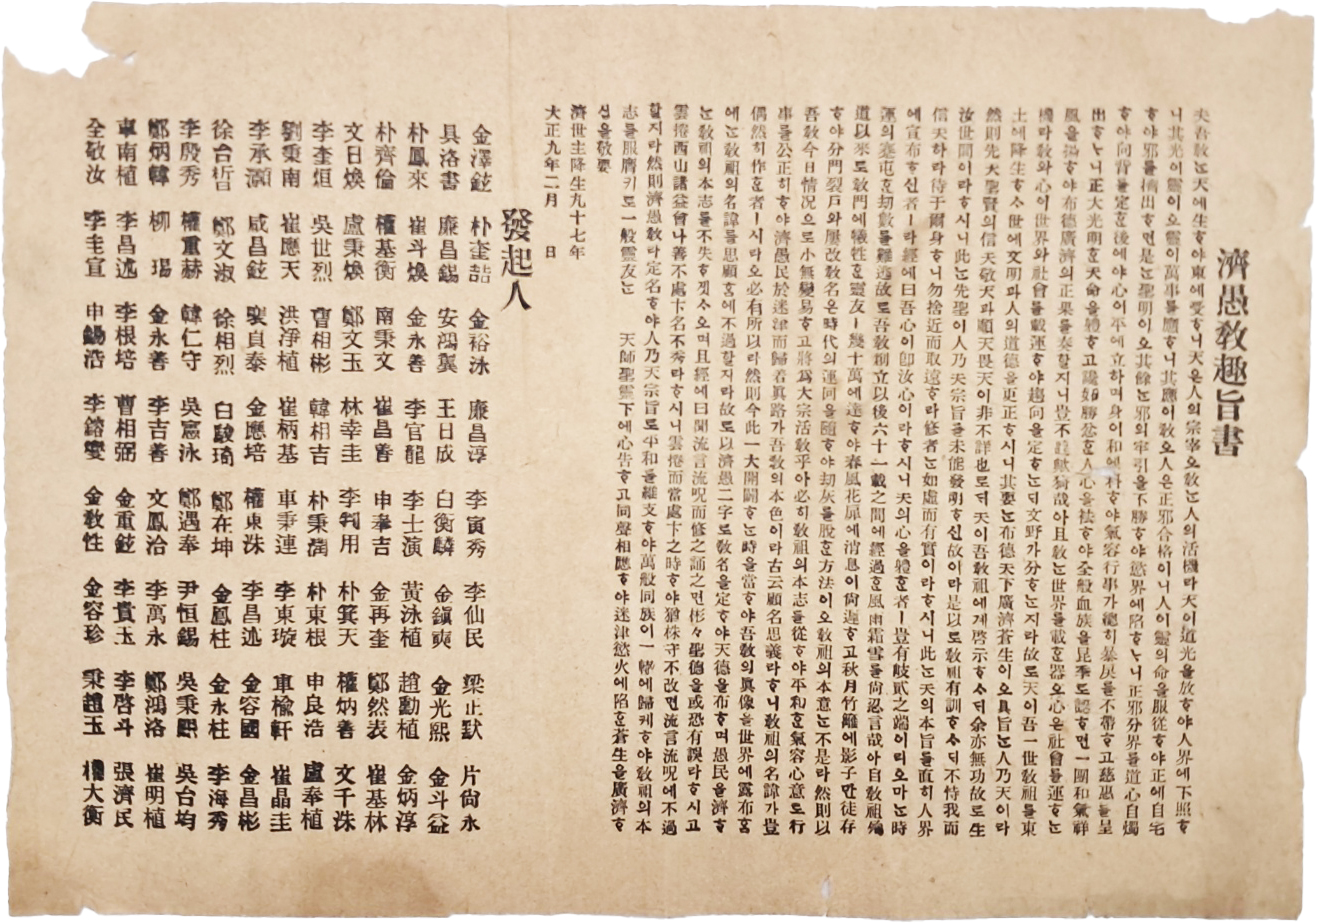 濟愚敎趣旨書
夫吾敎는天에生ᄒᆞ야東에受ᄒᆞ니天은人의宗宰오敎는人의活機라天이道光을放ᄒᆞ야人界에下照ᄒᆞ
니其光이靈이오靈이萬事를應ᄒᆞ니其應이敎오人은正邪合格이니人이靈의命을服從ᄒᆞ야正에自宅
ᄒᆞ야邪를擠出ᄒᆞ면是는聖明이오其餘는邪의牢引을不勝ᄒᆞ야慾界에陷ᄒᆞᄂᆞ니正邪分界를道心自燭
ᄒᆞ야向背를定ᄒᆞᆫ後에야心이平에立하며身이和에料ᄒᆞ야氣容行事가總히暴戾를不帶ᄒᆞ고慈惠를呈
出ᄒᆞᄂᆞ니正大光明ᄒᆞᆫ天命을體ᄒᆞ고識如勝忿ᄒᆞᆫ人心을袪ᄒᆞ야全般血族을昆季로認ᄒᆞ면一團和氣祥
風을揚ᄒᆞ야布德廣濟의正果를奏ᄒᆞᆯ지니豈不韙歟猗哉아且敎는世界를載ᄒᆞᆫ器오心은社會를運ᄒᆞᄂᆞᆫ
機라敎와心이世界와社會를載運ᄒᆞ야趨向을定ᄒᆞᄂᆞᆫᄃᆡ文野가分ᄒᆞᄂᆞᆫ지라故로天이吾一世敎祖를東
土에降生ᄒᆞ사世에文明과人의道德을更正ᄒᆞ시니其要는布德天下廣濟蒼生이오具旨는人乃天이라
然則先天聖賢의信天敬天과順天畏天이非不詳也로ᄃᆡ天이吾敎祖에게啓示ᄒᆞ사ᄃᆡ余亦無功故로生
汝世間이라ᄒᆞ시니此는先聖이人乃天宗旨를未能發明ᄒᆞ신故이라是以로敎祖有訓ᄒᆞ사ᄃᆡ不恃我而
信天하라待于爾身ᄒᆞ니勿捨近而取遠ᄒᆞ라修者는如虛而有實이라ᄒᆞ시니此는天의本旨를直히人界
에宣布ᄒᆞ신者ㅣ라經에曰吾心이卽汝心이라ᄒᆞ시니天의心을體ᄒᆞᆫ者ㅣ豈有歧貳之端이리오마는時
運의蹇屯ᄒᆞᆫ劫數를難逃故로吾敎刱立以後六十一載之間에經過ᄒᆞᆫ風雨霜雪를尙忍言哉아自敎祖殉
道以來로敎門에犧牲ᄒᆞᆫ靈友ㅣ幾十萬에達ᄒᆞ야春風花屛에消息이尙遲ᄒᆞ고秋月竹籬에影子만徒存
ᄒᆞ야分門裂戶와屢改敎名은時代의運回을隨ᄒᆞ야劫灰를脫ᄒᆞᆫ方法이오敎祖의本意는不是라然則以
吾敎今日情况으로小無變易ᄒᆞ고將爲大宗活敎乎아必히敎祖의本志를從ᄒᆞ야平和ᄒᆞᆫ氣容心意로行
事를公正히ᄒᆞ야濟愚民於迷津而歸着眞路가吾敎의本色이라古云顧名思義라ᄒᆞ니敎祖의名諱가豈
偶然히作ᄒᆞᆫ者ㅣ시라오必有所以라然則今此一大開闢ᄒᆞ는時를當ᄒᆞ야吾敎의眞像을世界에露布ᄒᆞᆷ
에는敎祖의名諱를思顧ᄒᆞᆷ에不過할지라故로以濟愚二字로敎名을定ᄒᆞ야天德을布ᄒᆞ며愚民을濟ᄒᆞ
는敎祖의本志를不失ᄒᆞᆯ것시오며且經에曰聞流言流呪而修之誦之면彬々聖德을或恐有誤라ᄒᆞ시고
雲捲西山諸益會나善不處卞名不秀라ᄒᆞ시니雲捲而當處卞之時ᄒᆞ야猶株守不改면流言流呪에不過
할지라然則濟愚敎라定名ᄒᆞ야人乃天宗旨로平和를維支ᄒᆞ야萬般同族이一幃에歸케ᄒᆞ야敎祖의本
志를服膺키로一般靈友는 天師聖靈下에心告ᄒᆞ고同聲相應ᄒᆞ야迷津慾火에陷ᄒᆞᆫ蒼生을廣濟ᄒᆞ
심을敬要
濟世主降生九十七年
大正九年二月 日
發起人
金澤鉉 朴奎喆 金裕泳 廉昌淳 李寅秀 李仙民 梁正默 片尙永
具洛書 廉昌錫 安鴻翼 王日成 白衡麟 金鎭奭 金光熙 金斗益
朴鳳來 崔斗煥 金永善 李官龍 李士演 黃泳植 趙動植 金炳淳
朴齊倫 權基衡 南秉文 崔昌善 申奉吉 金再奎 鄭然表 崔基林
文日煥 盧秉煥 鄭文玉 林幸圭 李用 朴箕天 權炳善 文千洙
李奎烜 吳世烈 曹相彬 韓相吉 朴秉潤 朴東根 申良浩 盧奉植
劉秉南 崔應天 洪淨植 崔柄基 車秉連 李東璇 車楡軒 崔晶圭
李承灝 咸昌鉉 裵貞泰 金應培 權東洙 李昌述 金容國 金昌彬
徐台晢 鄭文淑 徐相烈 白駿琦 鄭在坤 金鳳柱 金永柱 李海秀
李殷秀 權重赫 韓仁守 吳憲泳 鄭遇奉 尹恒錫 吳秉熙 吳台均
鄭炳韓 柳瑒 金永善 李吉善 文鳳洽 李萬永 鄭鴻洛 崔明植
車南植 李昌述 李根培 曹相弼 金重鉉 李貴玉 李啓斗 張濟民
全敬汝 李圭宣 申錫浩 李鎔夔 金敎性 金容珍 秉趙玉 權大衡